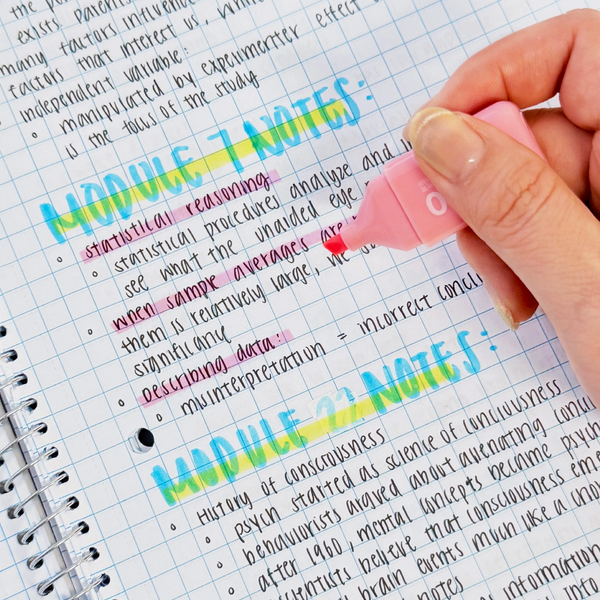 exists
many factors influence
factors that interest us, while
independent variable:
manipulated by experimenter effect
is the focus of the study
MODULE 7 NOTES:
statistical reasoning:
statistical procedures analyze and
see what the unaided eye
when sample averages are
them is relatively large, we
significance
Describing data:
misinterpretation = incorrect
MODULE 22 NOTES:
History of consciousness
psych started as science of consciousness
behaviorists argued about alienating
after 1960, mental concepts became
scientists believe that consciousness
brain events much like a
notes
information
into